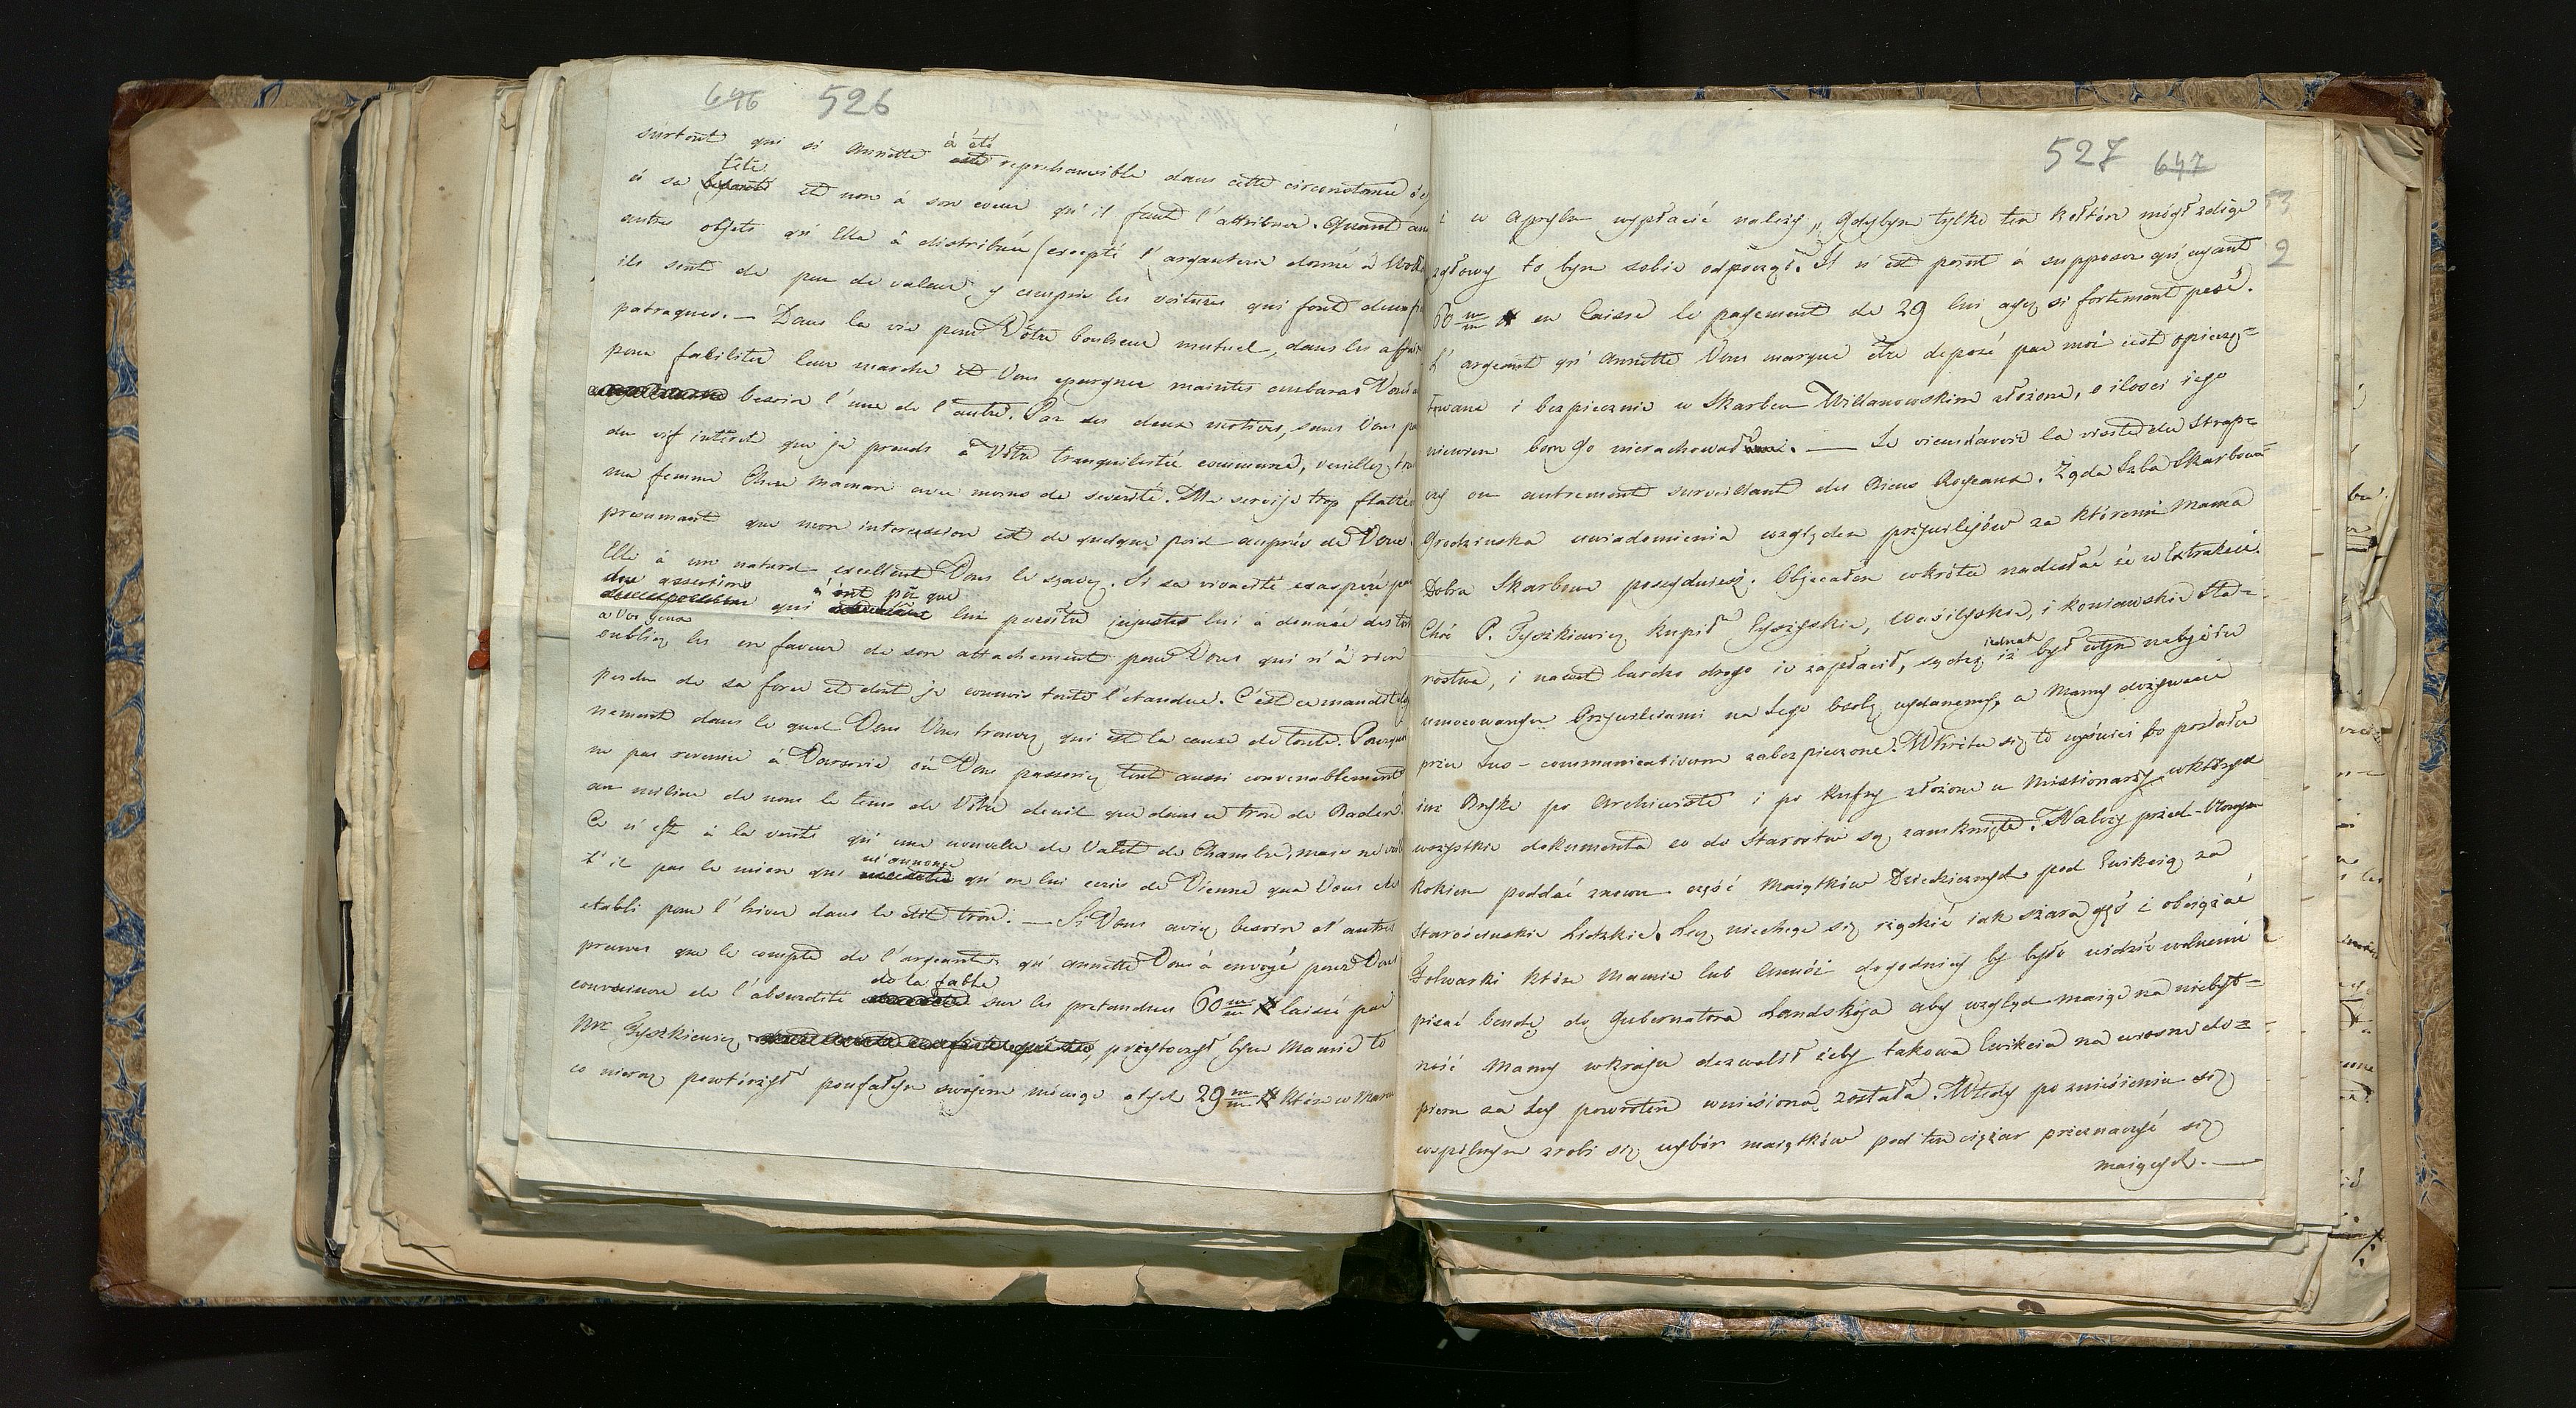 646 526
surtout qui si Annette à été reprehensible dans cette circonstance c'e
à sa tête et non à son coeur qu'il faut l'attribuer. Quand aux
autres objets qu'Elle à distribuée (excepté l'arganterie donné à
ils sont de peu de valeur y compris les voitures qui font
patraques. — Dans la vie pour Vôtre bonheur mutuel, dans les affair
pour faliliter leur marche et Vous epargner maintes embaras Vous
besoin l'une de l'autre. Par ses deux motives, sans Vous
du vif intêret que je prends à Vôtre tranquilistée commune, veuillez
ma femme Chere Maman avec moins de severité. Me seroije trop flattée
presumant que mon intercession est de quelque poid auprès de Vous.
Elle à un naturel excellent Vous le scavez. Si sa vivacité exasperé par
des assertions qui n'ont pû que lui paroître injustes lui à donnée des tort
a Vos yeux
oubliez les en faveur de son attachement pour Vous qui n'à rien
perdu de sa force et dont je connois toute l'etandue. C'est ce maudit
nement dans le quel Vous Vous trouvez qui est la cause de toute. Pourquoi
ne pas revenir à Varsovie où Vous passeriez tout aussi convenablement
au milieu de nous le tems de Vôtre deuil que dans ce trou de Baden.
Ce n'est à la verité qu'une nouvelle de Valet de Chambre, mais ne voil
t'il pas le mien qui m'annonce qu'on lui ecris de Vienne que Vous etes
etabli pour l'hiver dans le dit trou. — Si Vous aviez besoin d'autres
preuves que le compte de l'argeant qu'Annette Vous à envoyé pour Vous
convaincre de l'absurdité de la fable sur les pretandues 60 m/m # laissé par
Mr Tyszkiewicz, przytoczył bym Mamie to
co nieraz powtórzył poufałym swojem mówiąc o tych 29 m/m # które w Marcu
527 647
53
2
i w Aprylu wypłacić należy „Gdybym tylko ten kołtón mógł zdiąć
zgłowy to bym sobie odpoczął. Il n'est point à supposer qu'ayant
60 m/m # en Caisse le payement de 29 lui ayez si fortement pesé.
L'argeant qu'Annette Vous marque être deposé par moi iest opieczę=
towane i bezpiecznie w Skarbcu Willanowskim złożone, o ilosci iego
niewiem bom go nierachował. — Je viens d'avoir la visite du Strap=
czy ou autrement surveillant des Biens Royeaux. Żąda Izba Skarbowa
Grodzinska uwiadomienia względem przywilejów za któremi Mama
Dobra Skarbowe posiyduiesz. Objecałem wkrótce nadesłać ie w Extrakcie.
Choć P. Tyszkiewicz kupił Eyszyskie, Wasilyskie, i koniawskie Sta=
rostwa, i nawet bardzo drogo ie zapłacił, sądzę iednak iż był wtym nabyciu
umocowanym Przywileiami na Jego osobę wydanemi, a Mamy dożywocie
przez Jus-communicativum zabezpieczone. Wkrótce się to wyiaśni bo posłałem
iuż Bryke po Archiwistę i po kufry złożone u Missionarzy wktórych
wszystkie dokumenta co do Starostw są zamknięte. Należy przed-Nowym
Rokiem poddać znowu część Maiątków Dziedzicznych pod Ewikcią za
Starościnskie Lidzkie. Lecz niechcąc się rządzić iak szara gęś i obciążać
Folwarki które Mamie lub Annóż dogodniey by było widzieć wolnemi
pisać bendę do Gubernatora Landskoja aby wzgląd maiąc na niebyt=
ność Mamy wkraju dozwolił żeby takowa Ewikcia na wiosnę do=
piero za Jey powrotem wniesioną została. Wtedy po zniesieniu się
wspólnym zrobi się wybór maiątków pod ten ciężar przeznaczyć się
maiących. —